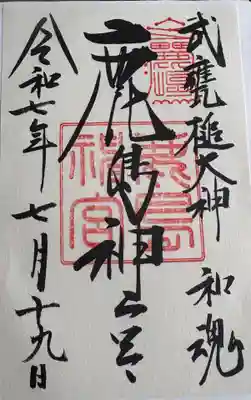 武甕槌大神 和魂
鹿島神宮
令和七年 七月十九日
鹿島神宮